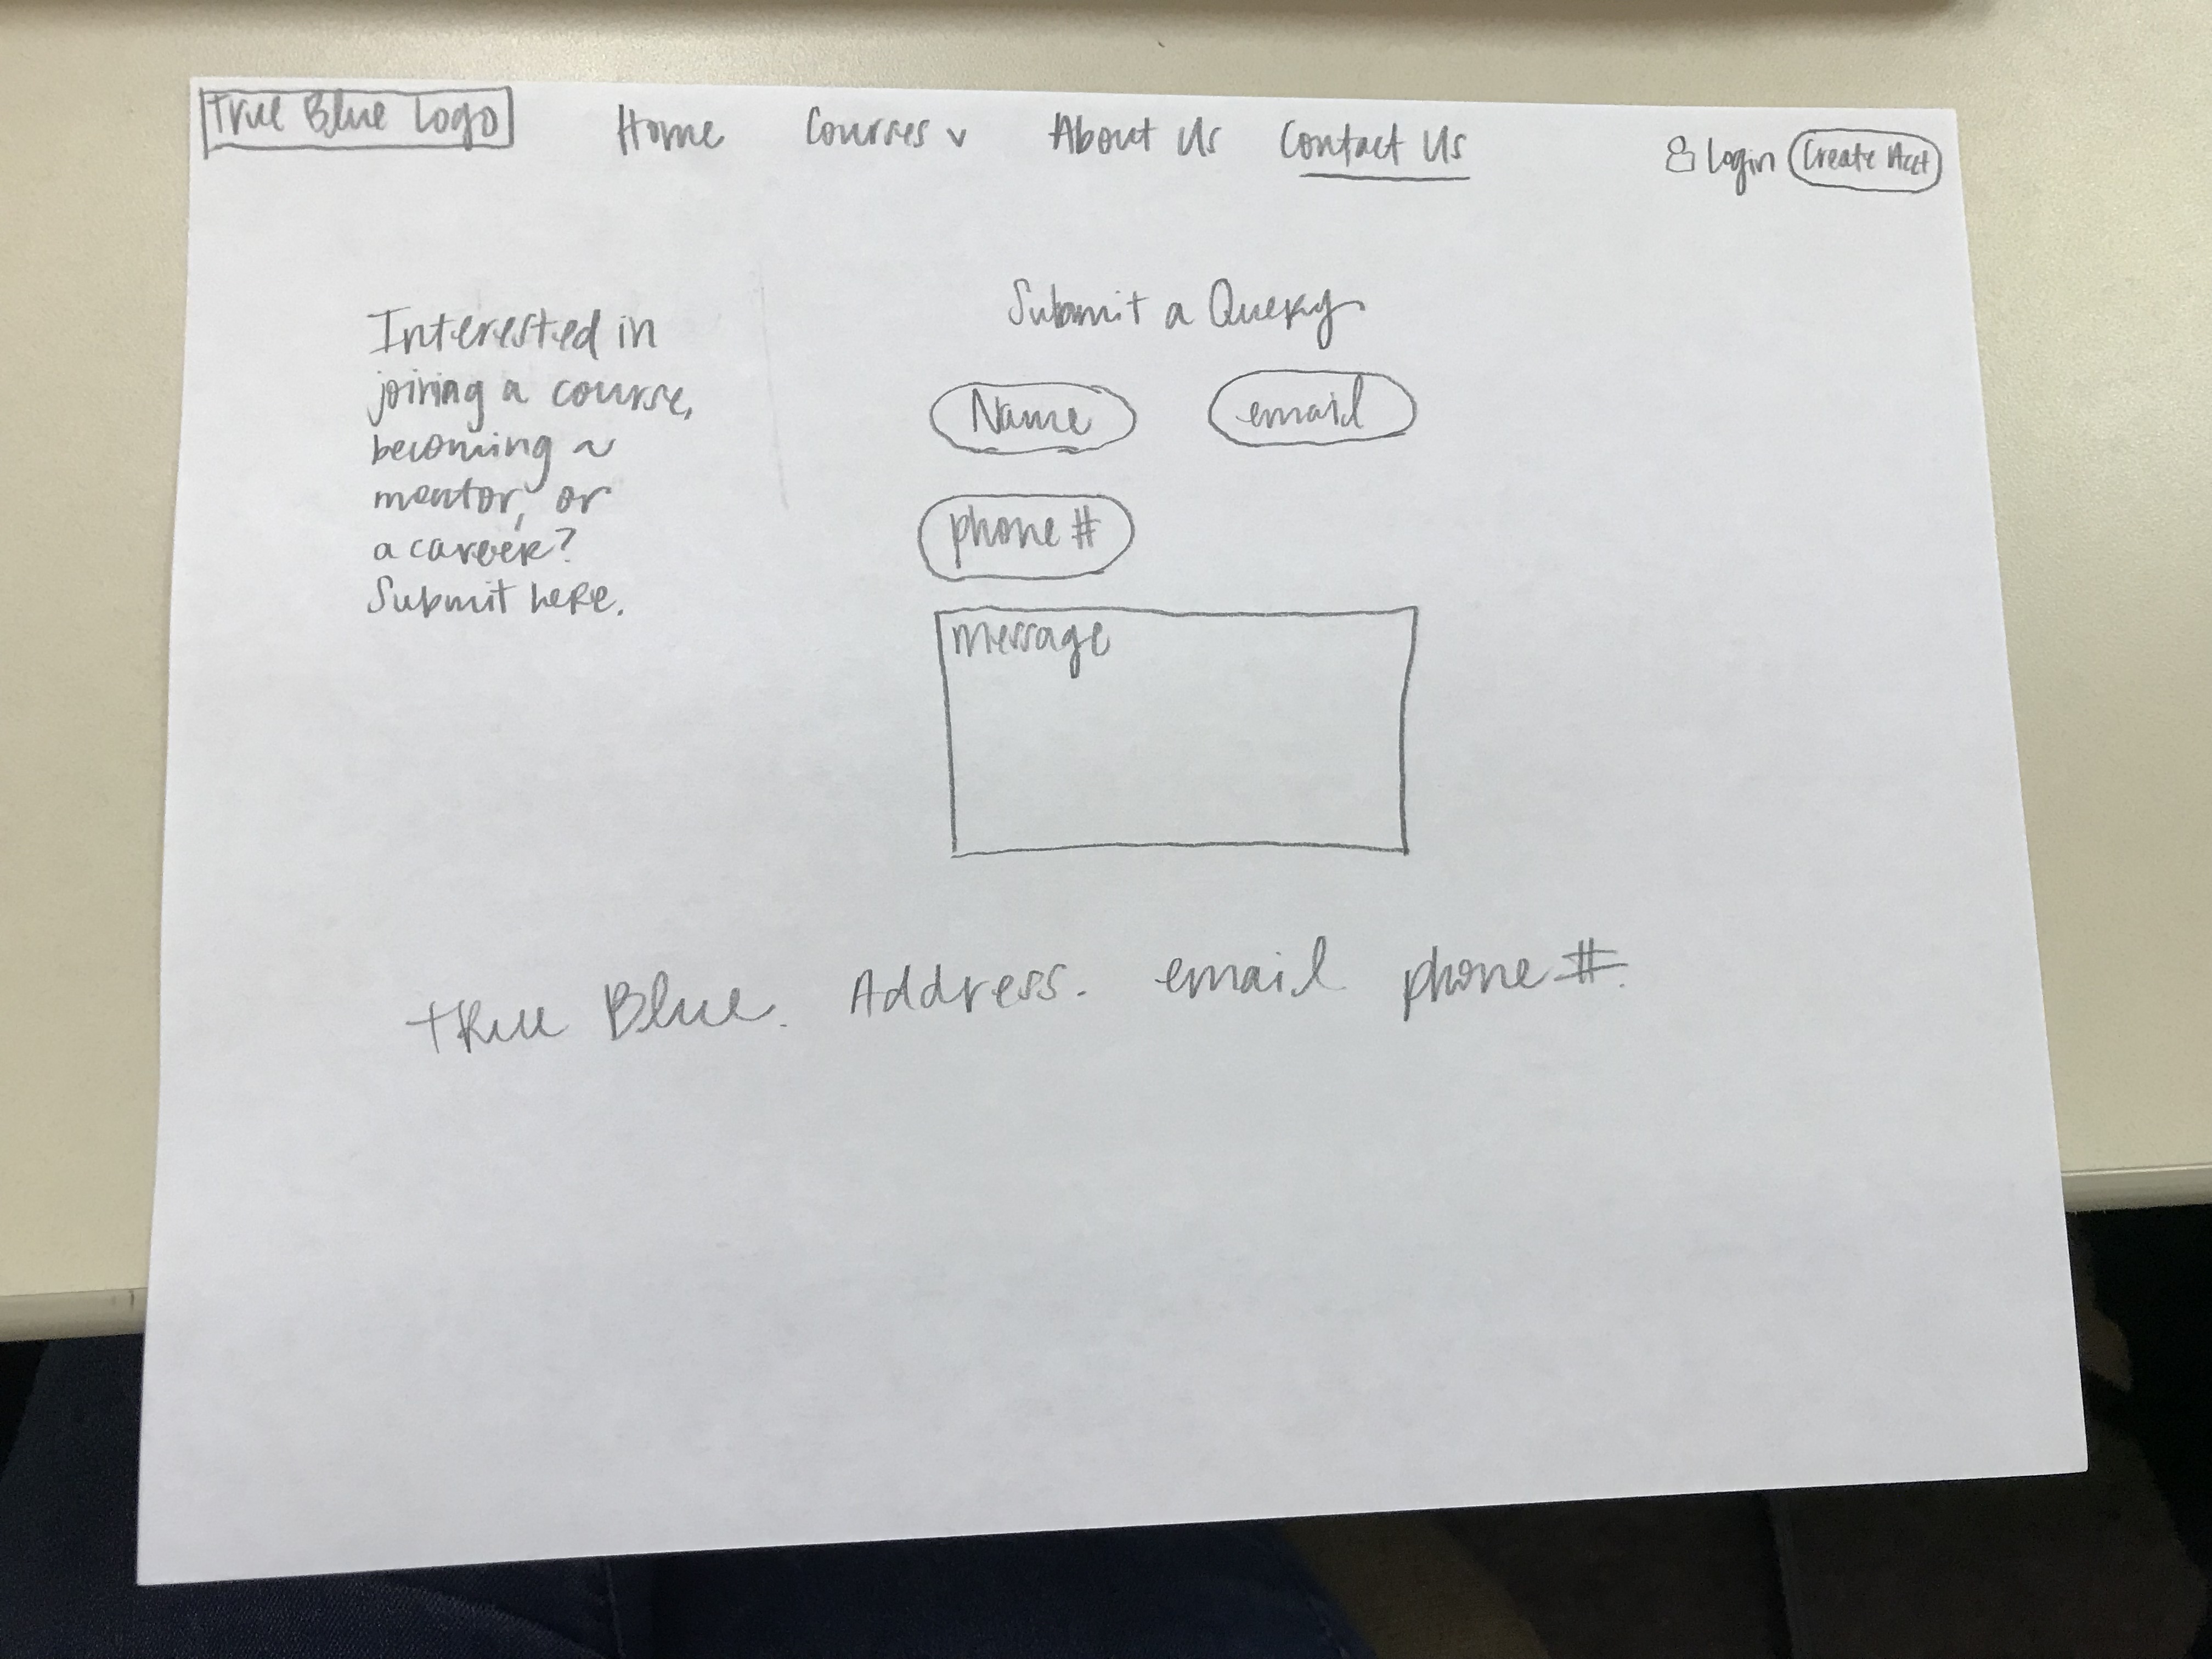 True Blue Logo Home Courses v About Us Contact Us Login Create Acct
Interested in
joining a course,
becoming a
mentor, or
a career?
Submit here.
Submit a Query
Name email
phone #
message
True Blue. Address. email phone #.